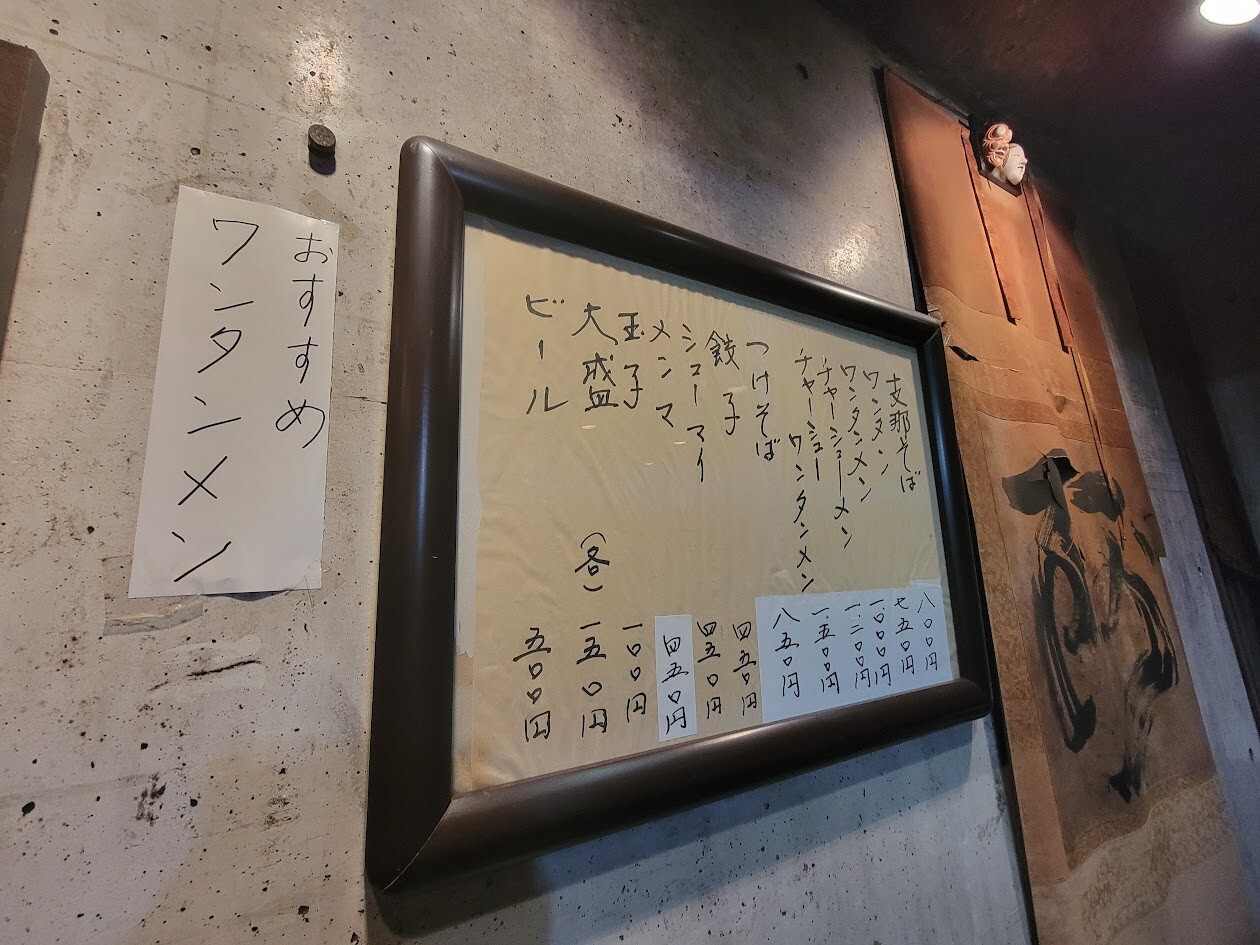 支那そば 八〇〇円
ワンタン 七五〇円
ワンタンメン 一.〇〇〇円
チャーシューメン 一.二〇〇円
チャーシューワンタンメン 一.五〇〇円
つけそば 八五〇円
餃子 四五〇円
シューマイ 四五〇円
メンマ 四五〇円
玉子 一〇〇円
大盛 (各) 一五〇円
ビール 五〇〇円
おすすめ
ワンタンメン